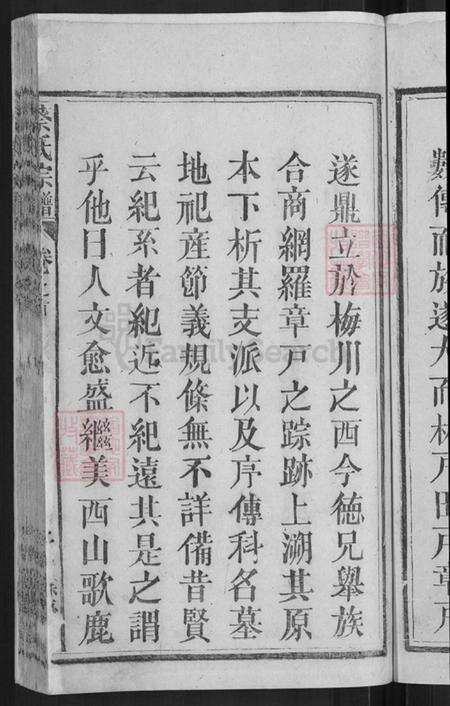 數傳而族遂大而林戶田戶章戶
遂鼎立於梅川之西今德兄舉族
合商網羅章戶之踪跡上溯其原
本下析其支派以及序傳科名墓
地祀產節義規條無不詳備昔賢
云紀系者紀近不紀遠其是之謂
乎他日人文愈盛繼美西山歌鹿
氏宗譜
FamilySearch